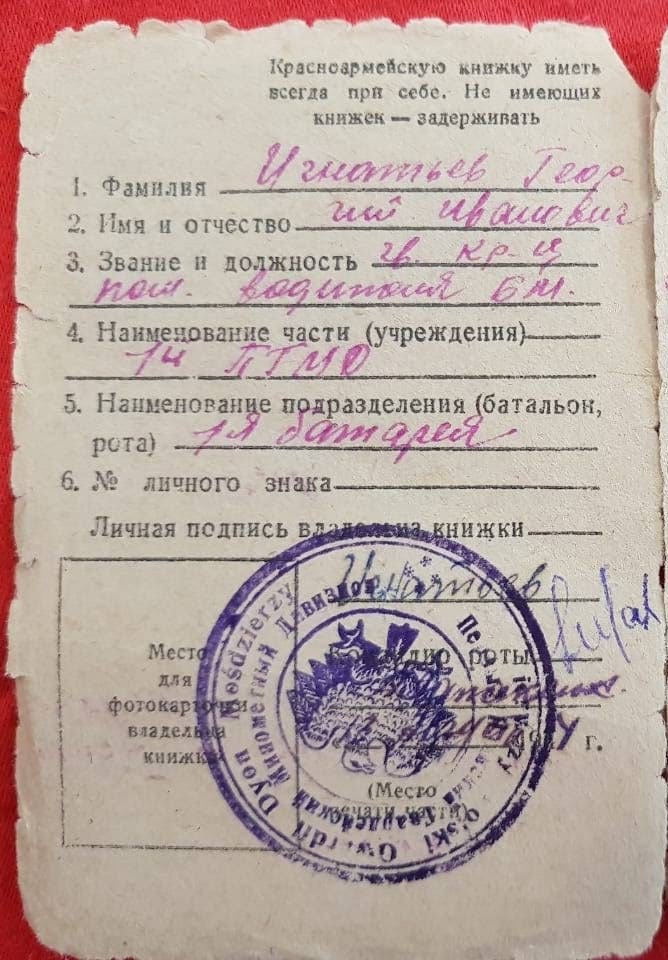 Красноармейскую книжку иметь
всегда при себе. Не имеющих
книжек — задерживать
1. Фамилия Игнатьев Геор-
2. Имя и отчество гий Иванович
3. Звание и должность гв. кр-ц
пом. водителя БМ.
4. Наименование части (учреждения)
14 ПГМД
5. Наименование подразделения (батальон,
рота) 1я батарея
6. № личного знака
Личная подпись владельца книжки
Игнатьев
Место
для
фотокарточки
владельца
книжки
Командир роты
194 г.
(Место
печати части)
Gwardii Dyon Moździerzy
Гвардейский Минометный Дивизион